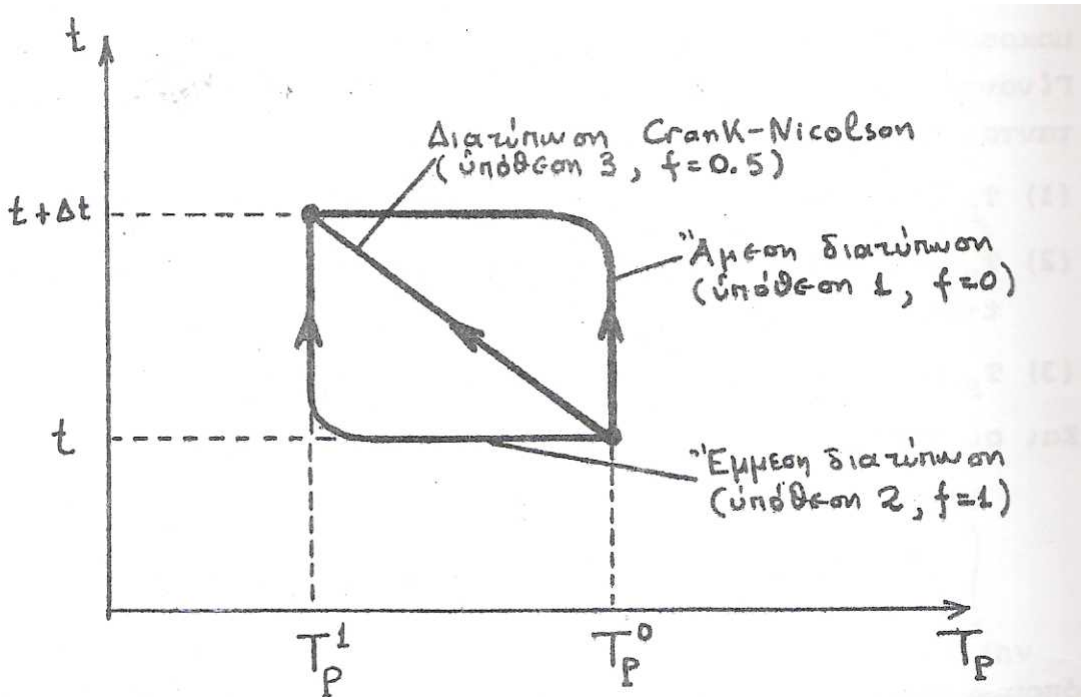 t
Διατύπωση Crank-Nicolson
(ὑπόθεση 3, f=0.5)
t+Δt
Ἄμεση διατύπωση
(ὑπόθεση 1, f=0)
t
Ἔμμεση διατύπωση
(ὑπόθεση 2, f=1)
T_P^1
T_P^0
T_P
(1)
(2)
(3)